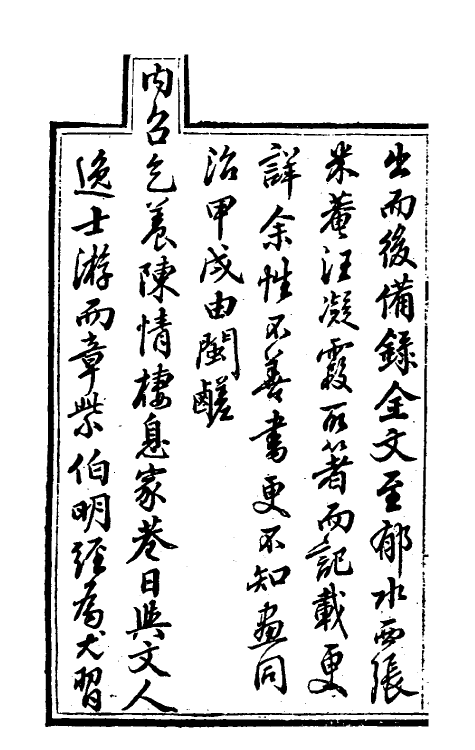 出而後備錄全文至郁水西張
米菴汪凝霞所著而記載更
詳余性不善書更不知畫同
治甲戌由閩鹺
內召乞養陳情棲息家巷日與文人
逸士游而章紫伯明經為尤習